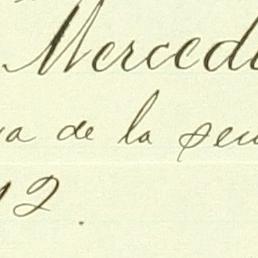 Merced
a de la
12.